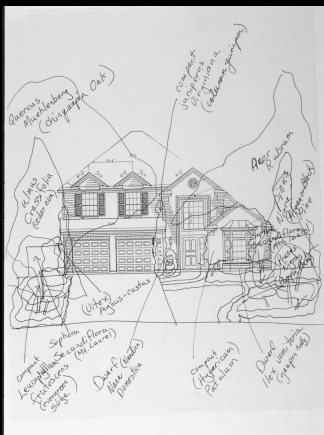 Quercus
Muehlenberg
(chinquapin Oak)
compact
juniperus
Virginiana
(columnar juniper)
Ulmus
Crassifolia
(cedar elm)
Acer
Rubrum
Pinus
(Vitex)
Agnus-castus
Sophora
Secundiflora
(Mt. Laurel)
compact
Leucophyllum
frutescens
(evergreen
sage)
Dwarf (Nandina)
Nana
Domestica
compact
(Hypericum)
Patulum
Dwarf
Ilex vomitoria
(yaupon holly)